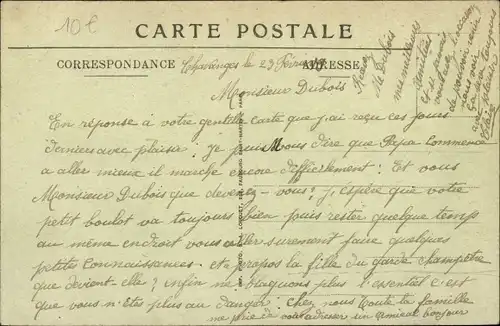 10€
CARTE POSTALE
CORRESPONDANCE
ADRESSE
Chavanges le 23 Février
Monsieur Dubois
En réponse à votre gentille carte que j'ai reçu ces jours
derniers avec plaisir. je puis Vous dire que Papa commence
a aller mieux il marche encore difficilement. Et vous
Monsieur Dubois que devenez-vous? j'espère que votre
petit boulot va toujours bien puis rester quelque temps
au même endroit vous aller surement faire quelques
petites connaissances. et a propos la fille du garde champêtre
que devient-elle? enfin ne blaguons plus l'essentiel c'est
que vous n'êtes plus au danger. Chez nous toute la famille
me prie de vous adresser un amical bonjour
Recevez
Mr Dubois
mes meilleures
amitiés
et si jamais
vous avez l'occasion
de pouvoir venir
nous voir
plaisir